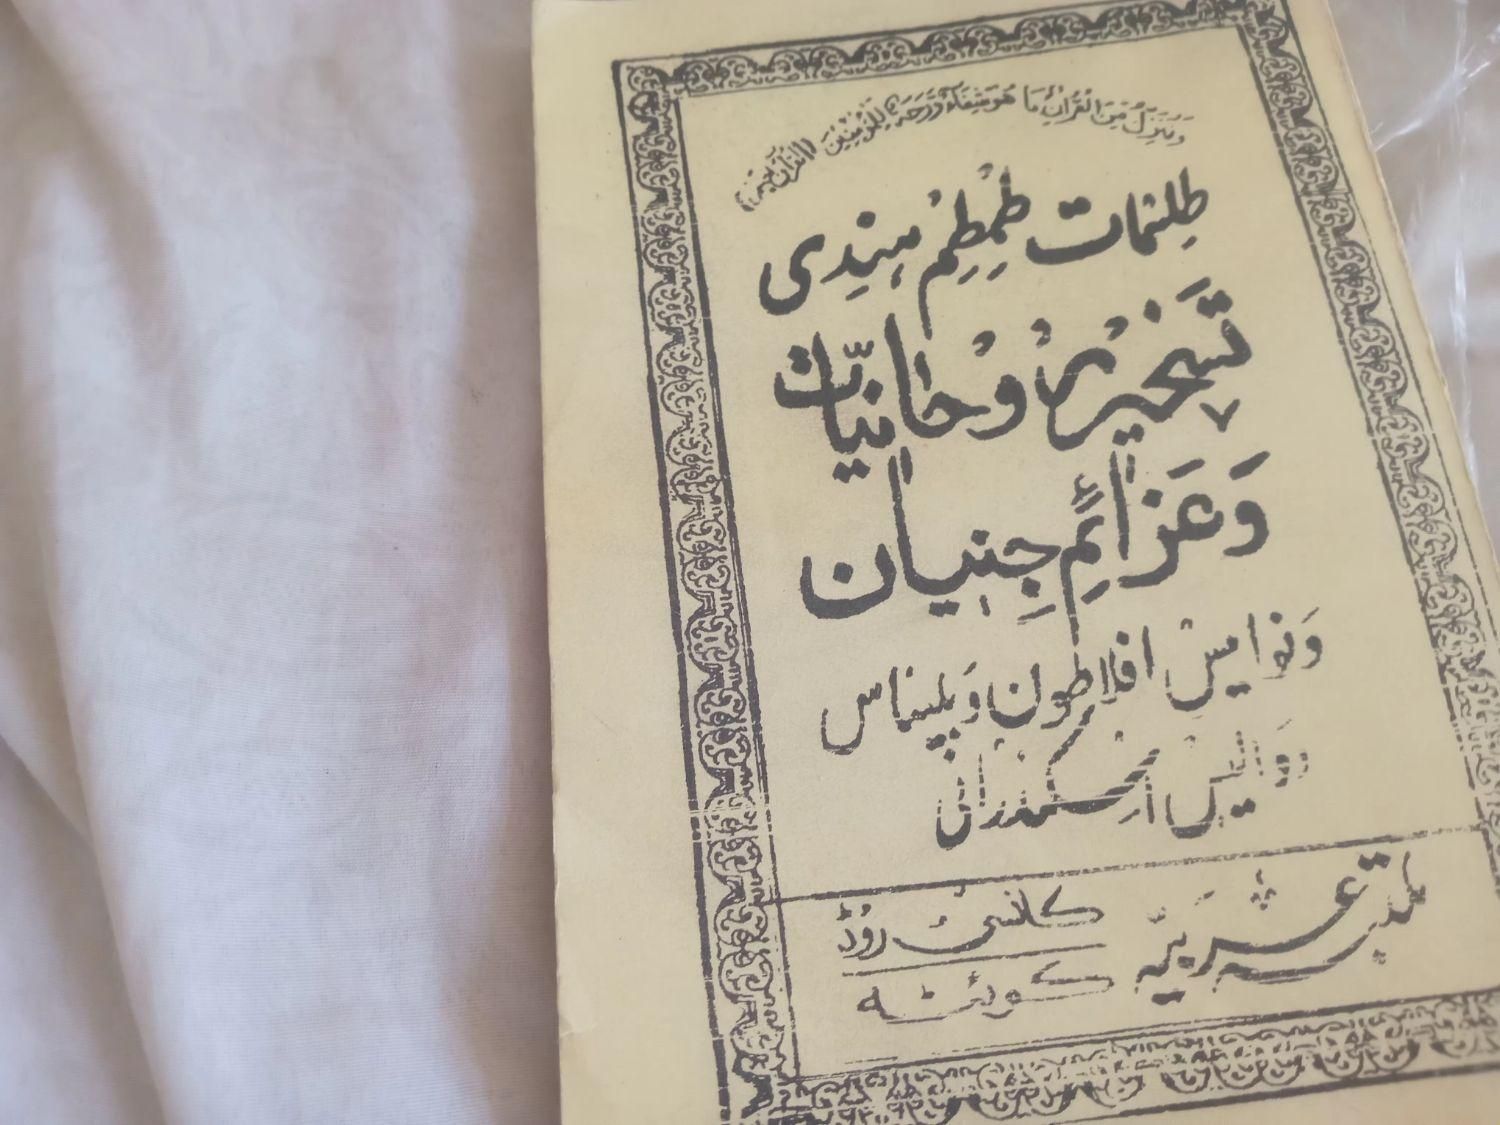 وَنُنَزِّلُ مِنَ الْقُرْآنِ مَا هُوَ شِفَاءٌ وَّرَحْمَةٌ لِّلْمُؤْمِنِيْنَ
طِلِسْمَات طُمْطُمْ ہِنْدِی
تَسْخِیْرِ رُوْحَانِیَّات
وَعَزَائِمِ جِنِّیَان
وَنَوَامِیْسِ افلاطون وَبلیناس
اِسْکَنْدَرَانی
مکتبہ عربیہ کانسی روڈ
کوئٹہ